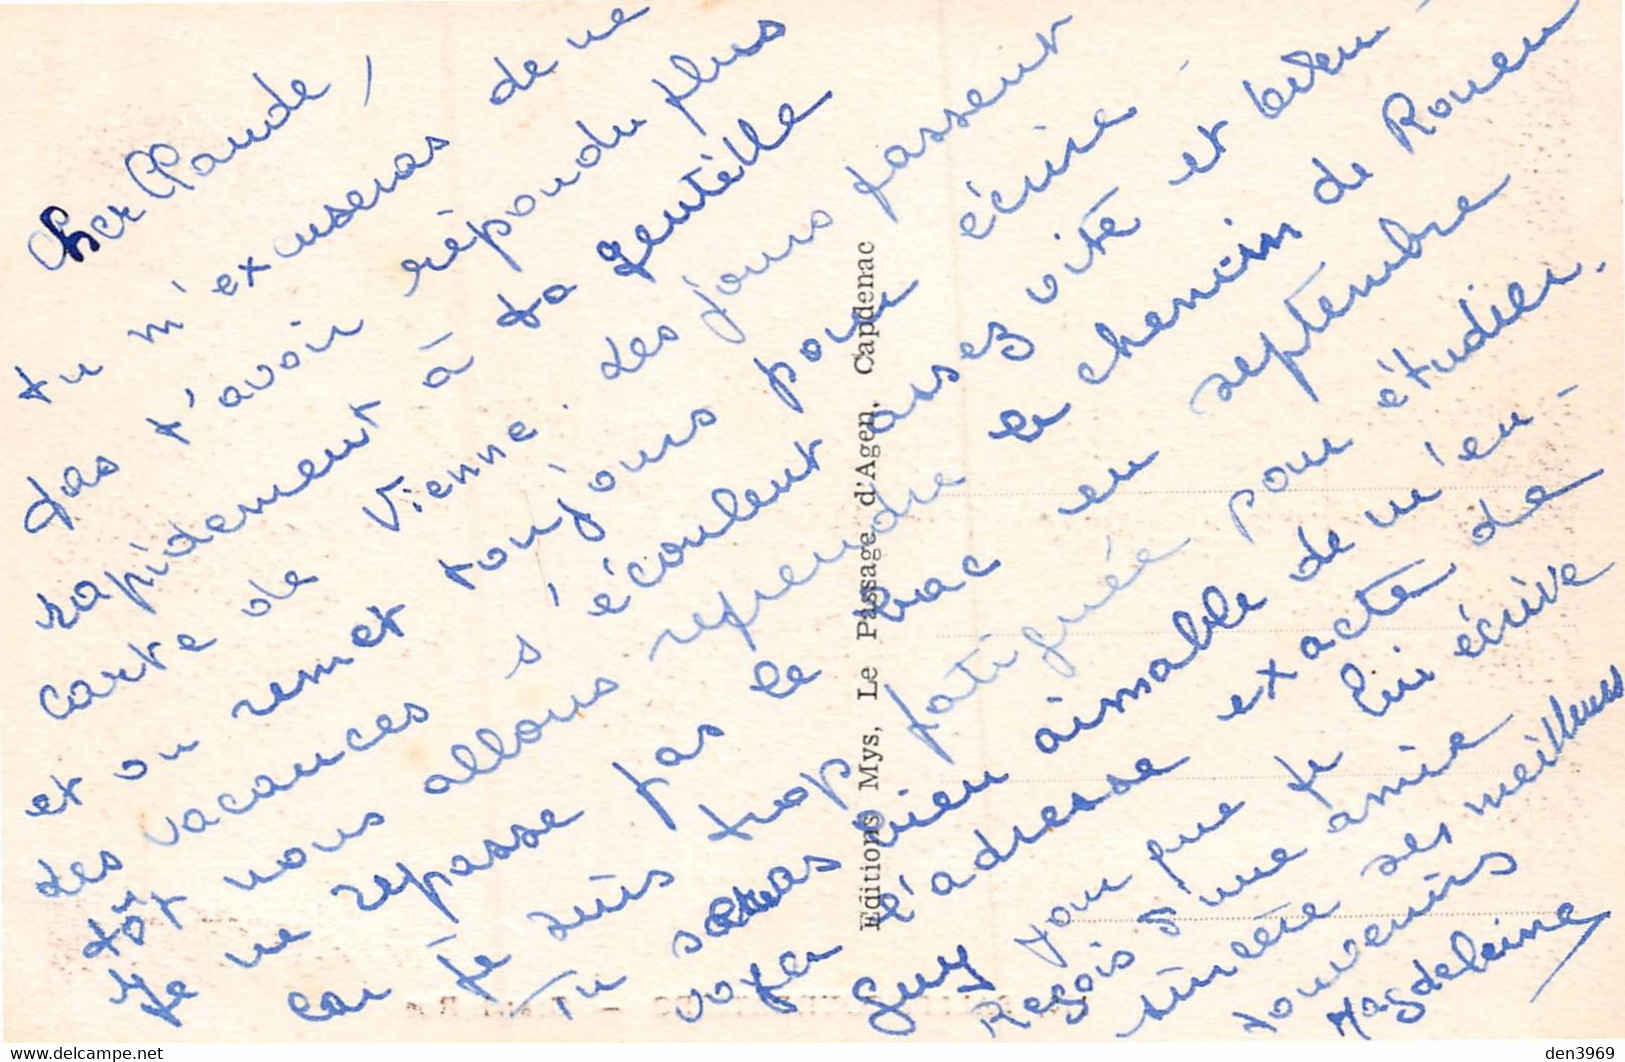 Cher Claude,
tu m'excuseras de ne
pas t'avoir répondu plus
rapidement à ta gentille
carte de Vienne. des jours passent
et on remet toujours pour écrire -
des vacances s'écoulent assez vite et bien -
tôt nous allons reprendre le chemin de Rouen
Je ne repasse pas le bac en septembre
car je suis trop fatiguée pour étudier.
Tu seras bien aimable de m'en -
voyer l'adresse exacte de
Guy pour que je lui écrive
Reçois d'une amie
sincère ses meilleurs
souvenirs
Magdeleine
Editions Mys, Le Passage d'Agen, Capdenac
www.delcampe.net
den3969